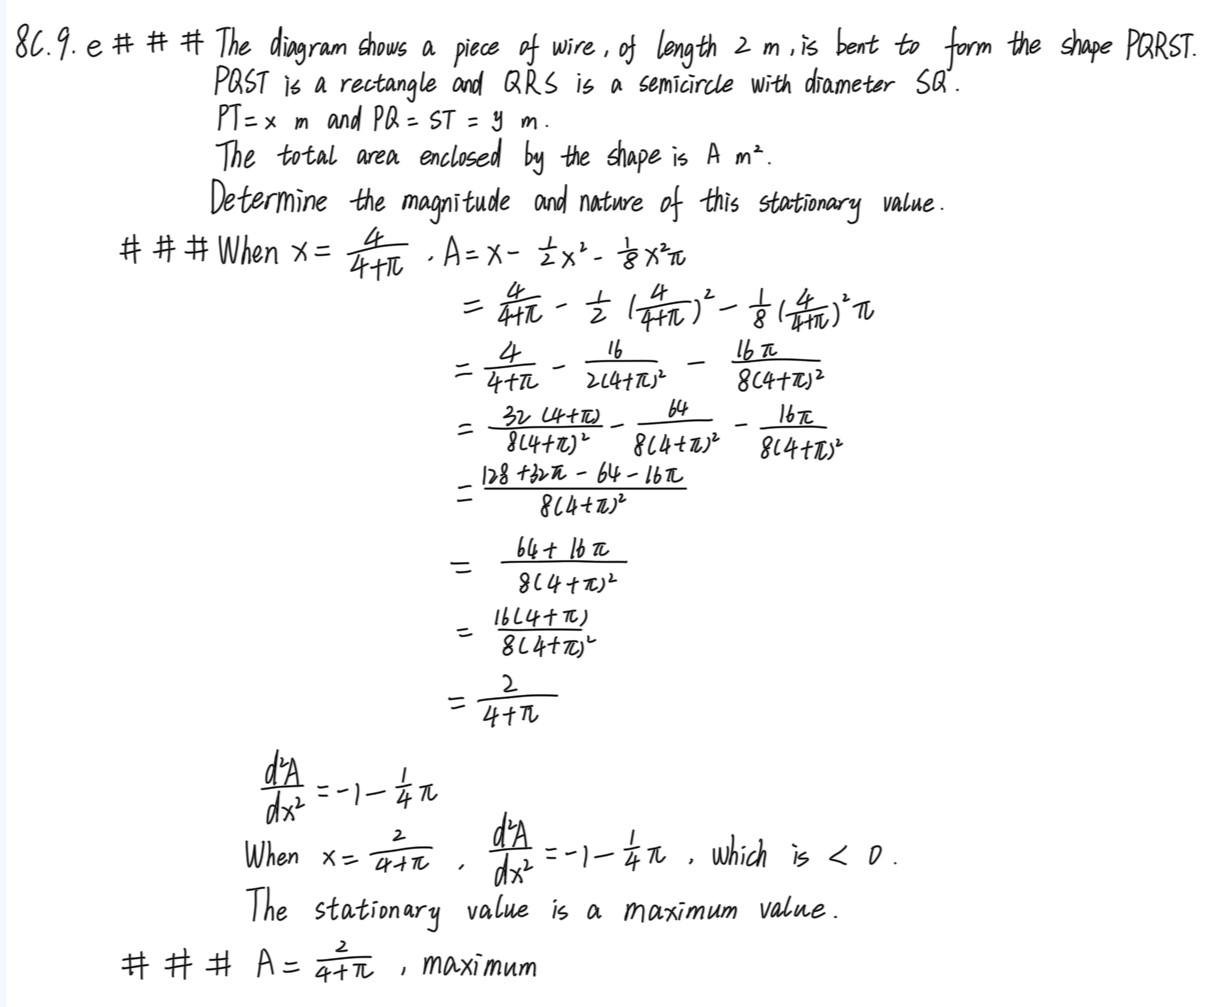 8C.9.e # # # The diagram shows a piece of wire, of length 2 m, is bent to form the shape PQRST.
PQST is a rectangle and QRS is a semicircle with diameter SQ.
PT = x m and PQ = ST = y m.
The total area enclosed by the shape is A m².
Determine the magnitude and nature of this stationary value.
# # # When x = 4/(4+π) . A = x - 1/2 x² - 1/8 x²π
= 4/(4+π) - 1/2 (4/(4+π))² - 1/8 (4/(4+π))² π
= 4/(4+π) - 16/(2(4+π)²) - 16π/(8(4+π)²)
= 32(4+π)/(8(4+π)²) - 64/(8(4+π)²) - 16π/(8(4+π)²)
= (128 + 32π - 64 - 16π)/(8(4+π)²)
= (64 + 16π)/(8(4+π)²)
= 16(4+π)/(8(4+π)²)
= 2/(4+π)
d²A/dx² = -1 - 1/4 π
When x = 2/(4+π) , d²A/dx² = -1 - 1/4 π , which is < 0 .
The stationary value is a maximum value .
# # # A = 2/(4+π) , maximum